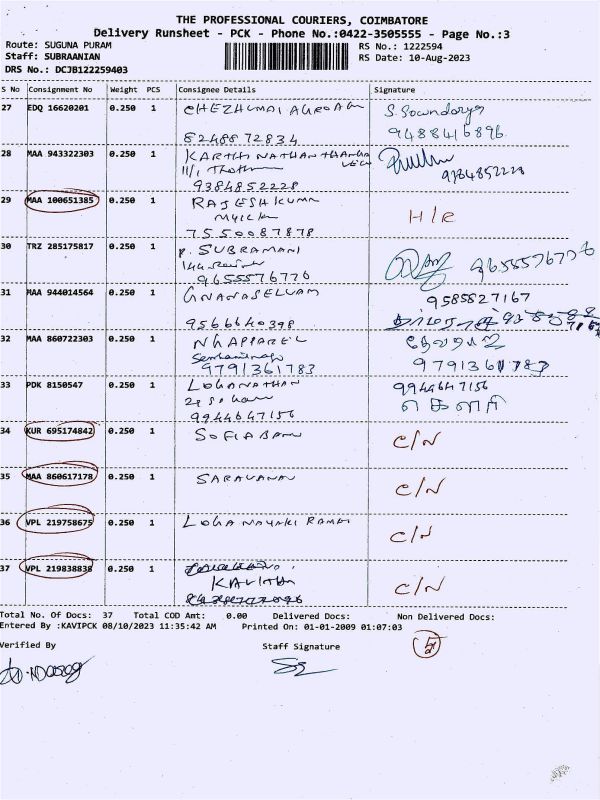 THE PROFESSIONAL COURIERS, COIMBATORE
Delivery Runsheet - PCK - Phone No.:0422-3505555 - Page No.:3
Route: SUGUNA PURAM
RS No.: 1222594
Staff: SUBRAANIAN
RS Date: 10-Aug-2023
DRS No.: DCJB122259403
S No Consignment No Weight PCS Consignee Details Signature
27 EDQ 16620201 0.250 1
S. Soundarya
8248872834
9488416896
28 MAA 943322303 0.250 1 KARTHI NATHAN
9384852228
9384852228
29 MAA 100651385 0.250 1 RAJESHKUMAR
H/R
7550087878
30 TRZ 285175817 0.250 1 P. SUBRAMANI
9655576776
9655576776
31 MAA 944014564 0.250 1 GNANASELVAM
9585827167
9566640398
32 MAA 860722303 0.250 1 NK APPAREL
9791361783
9791361783
33 PDK 8150547 0.250 1 LOGANATHAN
9944647156
9944647156
34 KUR 695174842 0.250 1 SOFIA BANU
C/N
35 MAA 860617178 0.250 1 SARAVANAN
C/N
36 VPL 219758675 0.250 1 LOGANAYAKI
C/N
37 VPL 219838838 0.250 1
KAVITHA
C/N
Total No. Of Docs: 37 Total COD Amt: 0.00 Delivered Docs: Non Delivered Docs:
Entered By :KAVIPCK 08/10/2023 11:35:42 AM Printed On: 01-01-2009 01:07:03
5
Verified By
Staff Signature